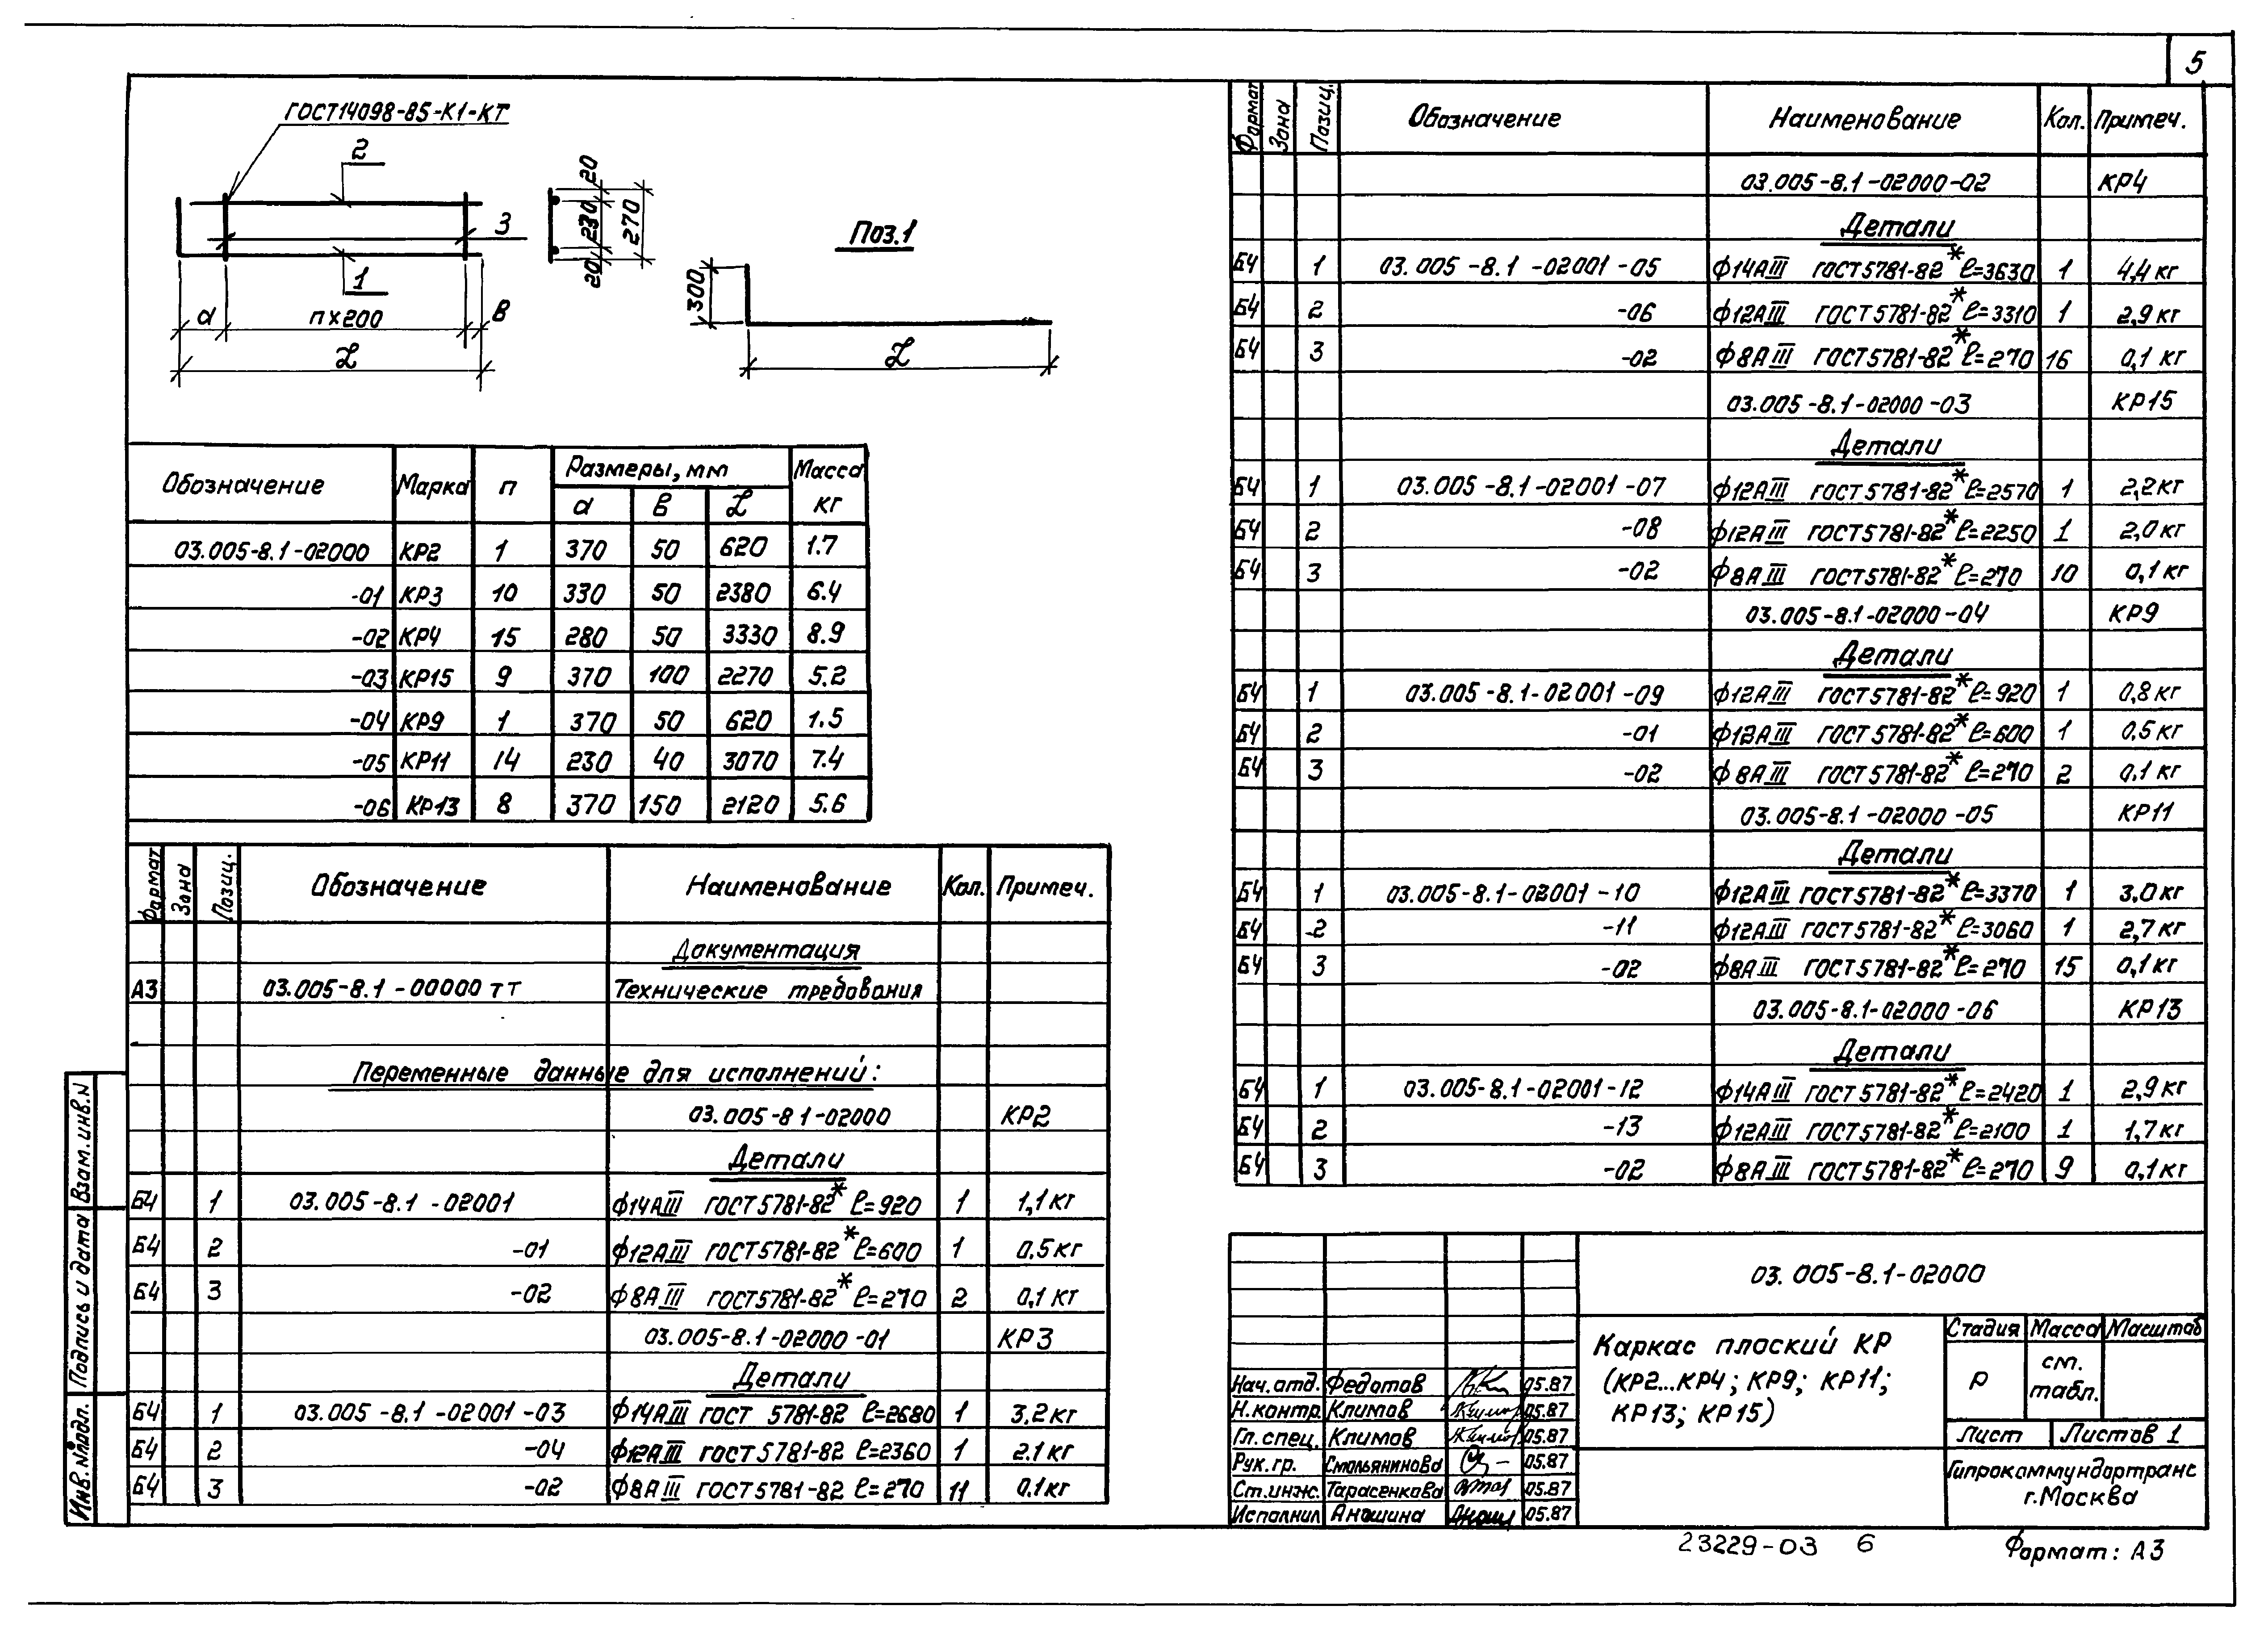 5
ГОСТ14098-85-К1-КТ
2
3
1
а
п×200
в
L
20
230
270
20
Поз.1
300
L
Обозначение Марка п Размеры, мм Масса кг
а в L
03.005-8.1-02000 КР2 1 370 50 620 1.7
-01 КР3 10 330 50 2380 6.4
-02 КР4 15 280 50 3330 8.9
-03 КР15 9 370 100 2270 5.2
-04 КР9 1 370 50 620 1.5
-05 КР11 14 230 40 3070 7.4
-06 КР13 8 370 150 2120 5.6
Формат Зона Позиц. Обозначение Наименование Кол. Примеч.
Документация
А3 03.005-8.1-00000 ТТ Технические требования
Переменные данные для исполнений:
03.005-8 1-02000 КР2
Детали
Б4 1 03.005-8.1-02001 ф14АIII ГОСТ 5781-82* ℓ=920 1 1,1 кг
Б4 2 -01 ф12АIII ГОСТ 5781-82* ℓ=600 1 0,5 кг
Б4 3 -02 ф8АIII ГОСТ 5781-82* ℓ=270 2 0,1 кг
03.005-8.1-02000-01 КР3
Детали
Б4 1 03.005-8.1-02001-03 ф14АIII ГОСТ 5781-82 ℓ=2680 1 3,2 кг
Б4 2 -04 ф12АIII ГОСТ 5781-82 ℓ=2360 1 2.1 кг
Б4 3 -02 ф8АIII ГОСТ 5781-82 ℓ=270 11 0,1 кг
Формат Зона Позиц. Обозначение Наименование Кол. Примеч.
03.005-8.1-02000-02 КР4
Детали
Б4 1 03.005-8.1-02001-05 ф14АIII ГОСТ 5781-82* ℓ=3630 1 4,4 кг
Б4 2 -06 ф12АIII ГОСТ 5781-82* ℓ=3310 1 2,9 кг
Б4 3 -02 ф8АIII ГОСТ 5781-82* ℓ=270 16 0,1 кг
03.005-8.1-02000-03 КР15
Детали
Б4 1 03.005-8.1-02001-07 ф12АIII ГОСТ 5781-82* ℓ=2570 1 2,2 кг
Б4 2 -08 ф12АIII ГОСТ 5781-82* ℓ=2250 1 2,0 кг
Б4 3 -02 ф8АIII ГОСТ 5781-82* ℓ=270 10 0,1 кг
03.005-8.1-02000-04 КР9
Детали
Б4 1 03.005-8.1-02001-09 ф12АIII ГОСТ 5781-82* ℓ=920 1 0,8 кг
Б4 2 -01 ф12АIII ГОСТ 5781-82* ℓ=600 1 0,5 кг
Б4 3 -02 ф8АIII ГОСТ 5781-82* ℓ=270 2 0,1 кг
03.005-8.1-02000-05 КР11
Детали
Б4 1 03.005-8.1-02001-10 ф12АIII ГОСТ 5781-82* ℓ=3370 1 3,0 кг
Б4 2 -11 ф12АIII ГОСТ 5781-82* ℓ=3060 1 2,7 кг
Б4 3 -02 ф8АIII ГОСТ 5781-82* ℓ=270 15 0,1 кг
03.005-8.1-02000-06 КР13
Детали
Б4 1 03.005-8.1-02001-12 ф14АIII ГОСТ 5781-82* ℓ=2420 1 2,9 кг
Б4 2 -13 ф12АIII ГОСТ 5781-82* ℓ=2100 1 1,7 кг
Б4 3 -02 ф8АIII ГОСТ 5781-82* ℓ=270 9 0,1 кг
Инв.№подл. Подпись и дата Взам.инв.N
03.005-8.1-02000
Каркас плоский КР
(КР2...КР4; КР9; КР11;
КР13; КР15)
Стадия Масса Масштаб
Р ст. табл.
Лист Листов 1
Гипрокоммундортранс
г.Москва
Нач.отд. Федотов 05.87
Н.контр. Климов 05.87
Гл.спец. Климов 05.87
Рук.гр. Смольянинова 05.87
Ст.инж. Тарасенкова 05.87
Исполнил Аношина 05.87
23229-03 6
Формат: А3